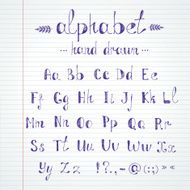 alphabet
hand drawn
Aa Bb Cc Dd Ee
Ff Gg Hh Ii Jj Kk Ll
Mm Nn Oo Pp Qq Rr
Ss Tt Uu Vv Ww Xx
Yy Zz !?.,-@(:;)><